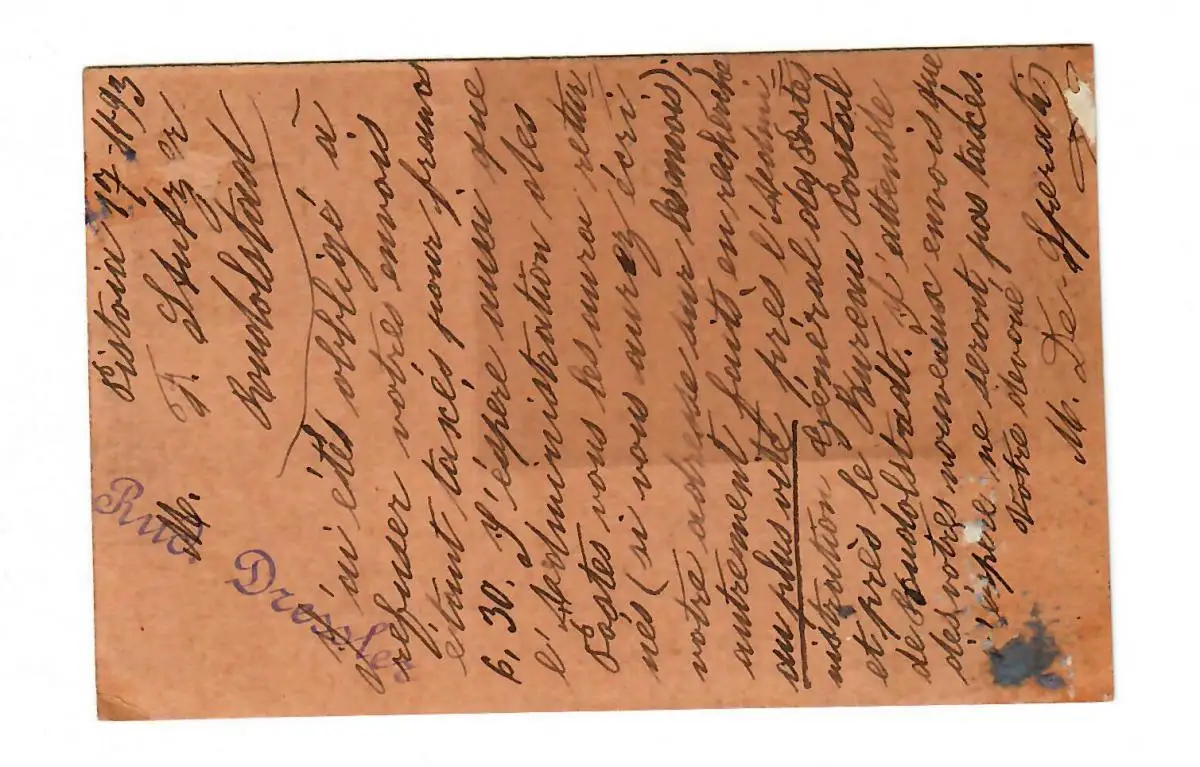 Pistoia 17-11-93
M. F. Stutzer
Roudolstadt
J'ai étés obbligé à
réfuser votres envois
étant taxés pour francs
6,30. J'éspere aussi que
l'Administration des
Póstes vous les aura retur
nés (si vous aurez écri
votre adresse sur les envois);
autrement faits en recherche
au plus vite près l'Admi
nistration Général des Postes
et près le Bureau Postal
de Roudolstadt. J'attende
des votres nouveaux envois que
j'éspère ne seront pas taxés.
Votre dévoné
M. De Sperati
Rud. Droscher